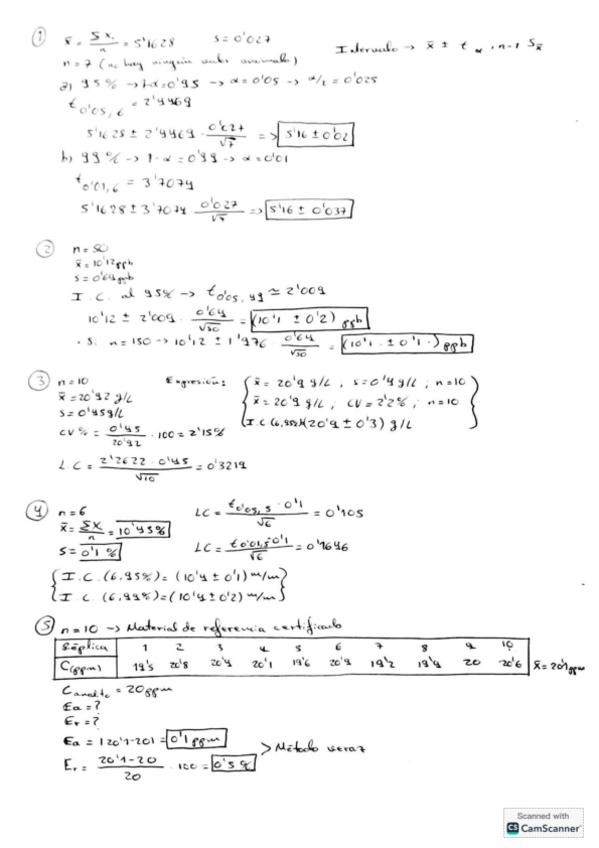 ① x̄ = Σxᵢ/n = 5'1628   s = 0'027   Intervalo → x̄ ± t α, n-1 S x̄
n = 7 (no hay ningún valor anómalo)
a) 95% → 1-α = 0'95 → α = 0'05 → α/2 = 0'025
t 0'05, 6 = 2'4469
5'1628 ± 2'4469 · 0'027/√7 => 5'16 ± 0'02
b) 99% → 1-α = 0'99 → α = 0'01
t 0'01, 6 = 3'7074
5'1628 ± 3'7074 · 0'027/√7 => 5'16 ± 0'037
② n = 50
x̄ = 10'12 ppb
s = 0'64 ppb
I.C. al 95% → t 0'05, 49 ≃ 2'009
10'12 ± 2'009 · 0'64/√50 = (10'1 ± 0'2) ppb
· Si n = 150 → 10'12 ± 1'976 · 0'64/√50 = (10'1 ± 0'1) ppb
③ n = 10   Expresión: x̄ = 20'9 g/L, s = 0'4 g/L ; n = 10
x̄ = 20'92 g/L   x̄ = 20'9 g/L, CV = 2'2% ; n = 10
s = 0'45 g/L   I.C (6,95%)(20'9 ± 0'3) g/L
CV% = 0'45/20'92 · 100 = 2'15%
L.C = 2'2622 · 0'45/√10 = 0'3219
④ n = 6   LC = t 0'05, 5 · 0'1/√6 = 0'105
x̄ = Σx/n = 10'43%
s = 0'1 %   LC = t 0'01, 5 · 0'1/√6 = 0'1646
I.C. (6,95%) = (10'4 ± 0'1) m/m
I.C. (6,99%) = (10'4 ± 0'2) m/m
⑤ n = 10 → Material de referencia certificado
Réplica 1 2 3 4 5 6 7 8 9 10
C(ppm) 19'5 20'8 20'4 20'1 19'6 20'9 19'2 19'9 20 20'6   x̄ = 20'1 ppm
C analito = 20 ppm
Ea = ?
Er = ?
Ea = |20'1-20| = 0'1 ppm
> Método veraz
Er = 20'1-20/20 · 100 = 0'5 %
Scanned with
CS CamScanner